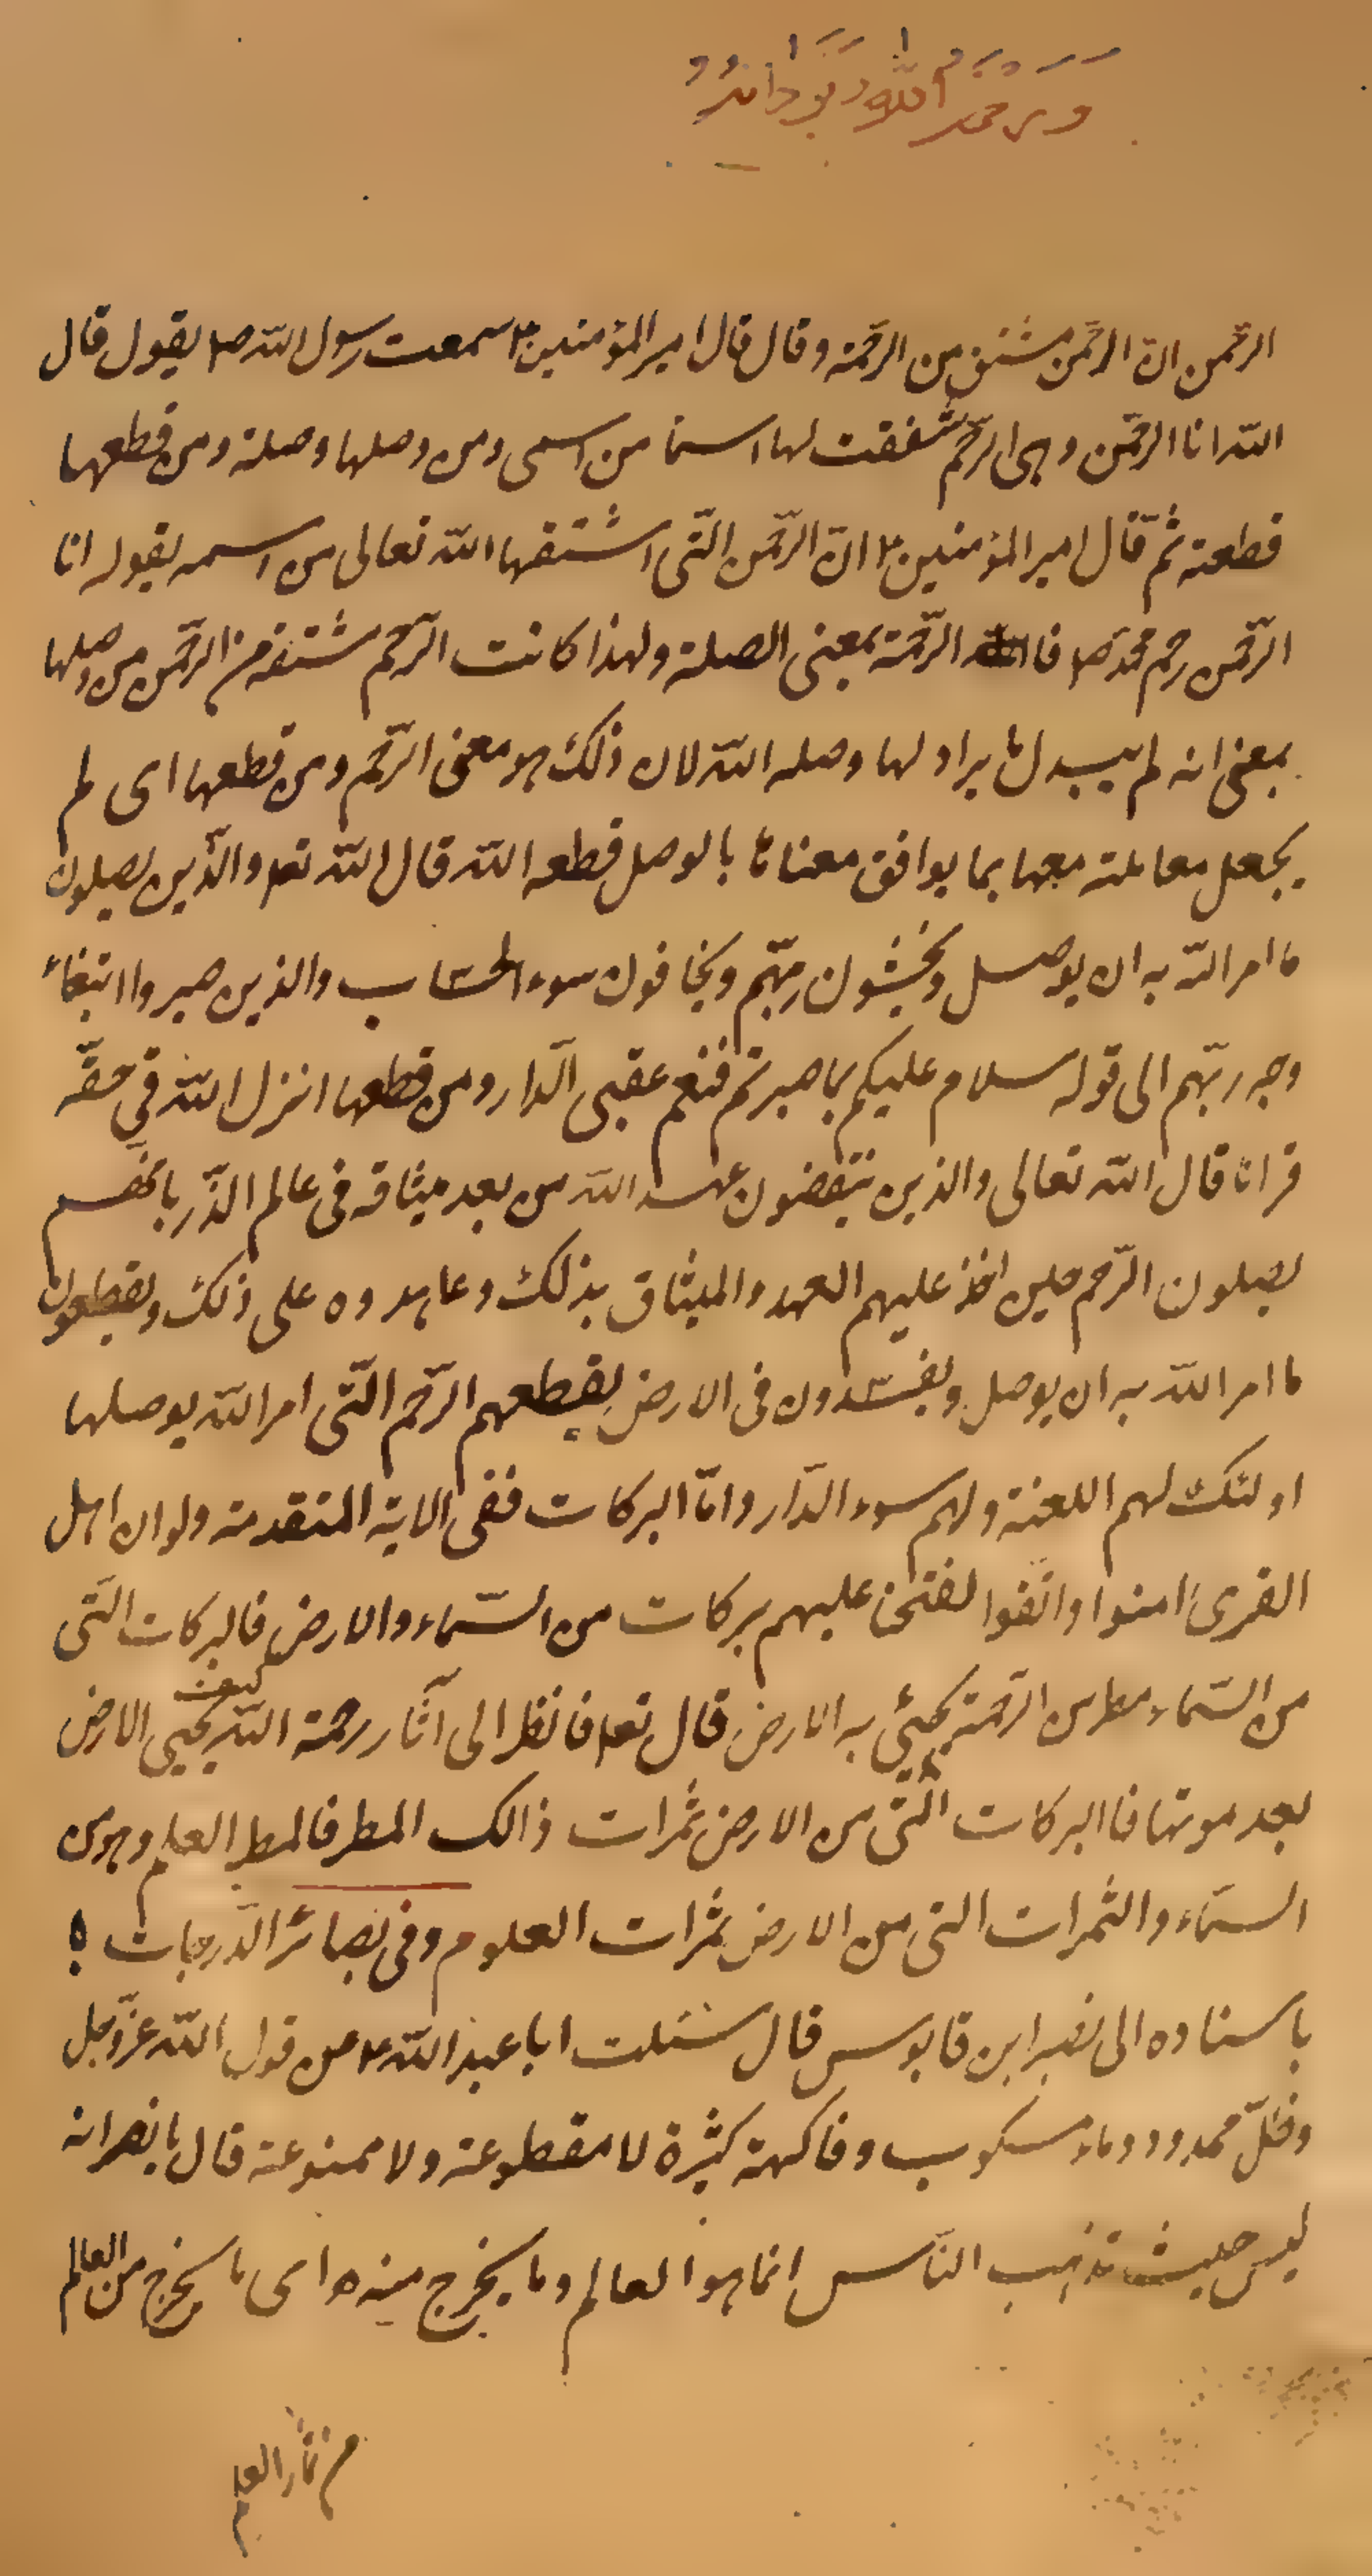 وَرَحْمَةُ اللّٰهِ وَبَرَكَاتُهُ
الرّحمن انّ الرّحمن مشتق من الرّحمة وقال قال امير المؤمنين ع سمعت رسول اللّه ص يقول قال
اللّه انا الرّحمن وهى الرّحم شققت لها اسما من اسمى ومن وصلها وصلته ومن قطعها
قطعته ثمّ قال امير المؤمنين ع انّ الرّحمن الّتى اشتقها اللّه تعالى من اسمه بقوله انا
الرّحمن رحم محمّد ص فا الرّحمة بمعنى الصلة ولهذا كانت الرّحم مشتقة من الرّحمن من وصلها
بمعنى انه لم يبدل ما يراد لها وصله اللّه لان ذلك هو معنى الرّحم ومن قطعها اى لم
يجعل معاملته معها بما يوافق معناها بالوصل قطعه اللّه قال اللّه تعم والّذين يصلون
ما امر اللّه به ان يوصل ويخشون ربّهم ويخافون سوء الحسٰاب والذين صبروا ابتغاء
وجه ربّهم الى قوله سلام عليكم بما صبرتم فنعم عقبى الّدار ومن قطعها انزل اللّه فى حقّه
قرانا قال اللّه تعالى والذين ينقضون عهد اللّه من بعد ميثاقه فى عالم الذّر بانّهم
يصلون الرّحم حين اخذ عليهم العهد والميثاق بذلك وعاهدوه على ذلك ويقطعون
ما امر اللّه به ان يوصل ويفسدون فى الارض بقطعهم الرّحم الّتى امر اللّه بوصلها
اولئك لهم اللعنة ولهم سوء الدّار وامّا البركات ففى الاية المتقدمة ولو ان اهل
القرى امنوا واتّقوا لفتحنا عليهم بركات من السّماء والارض فالبركات الّتى
من السّماء مطر من الرّحمة يحيئ به الارض قال تعم فانظر الى آثار رحمة اللّه كيف يحيى الارض
بعد موتها فا البركات الّتى من الارض ثمرات ذالك المطر فالمطر العلم وهو من
السّماء والثمرات التى من الارض ثمرات العلوم وفى بصائر الدّرجات
باسناده الى نصر ابن قابوس قال سئلت ابا عبد اللّه ع عن قول اللّه عزّ وجل
وظلّ ممدود وماء مسكوب وفاكهة كثيرة لا مقطوعة ولا ممنوعة قال يا نصر انه
ليس حيث تذهب النّاس انما هو العالم وما يخرج منه اى ما يخرج من العالم
من ثمار العلم